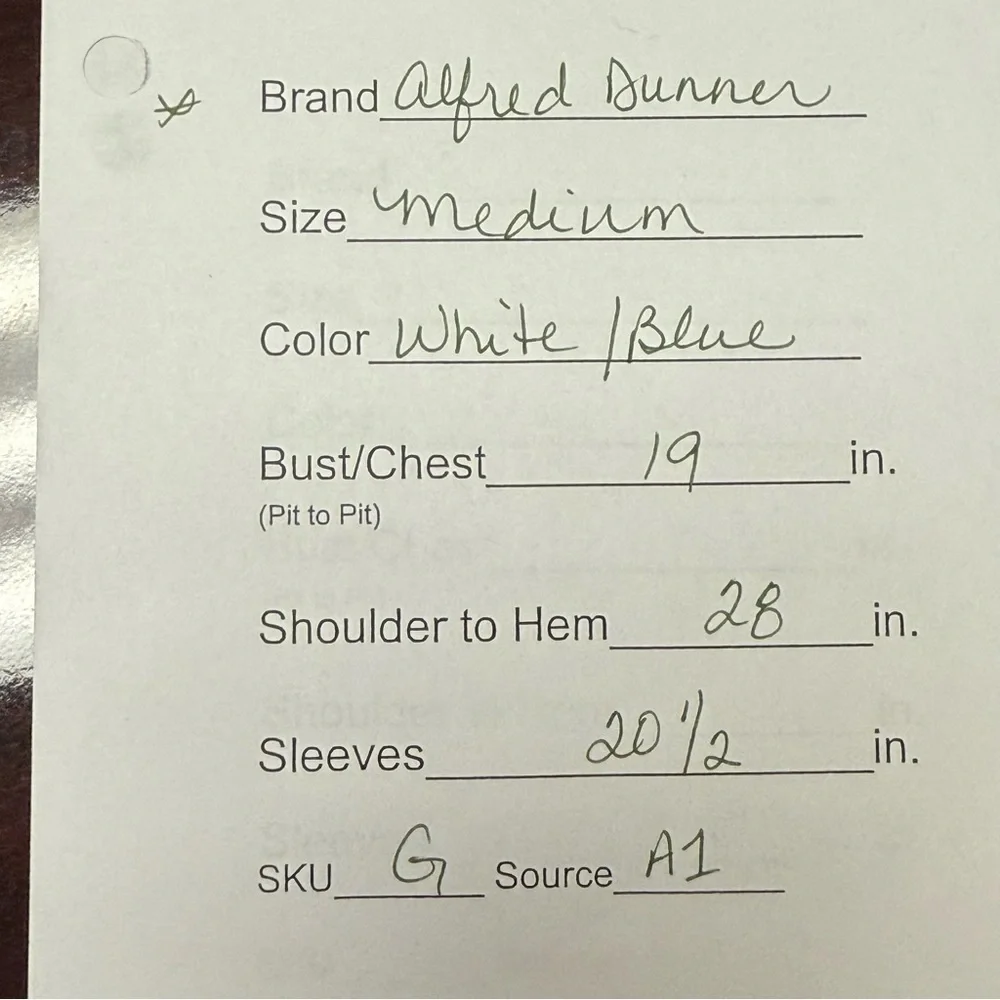 Brand Alfred Dunner
Size Medium
Color White/Blue
Bust/Chest 19 in.
(Pit to Pit)
Shoulder to Hem 28 in.
Sleeves 20 1/2 in.
SKU G Source A1